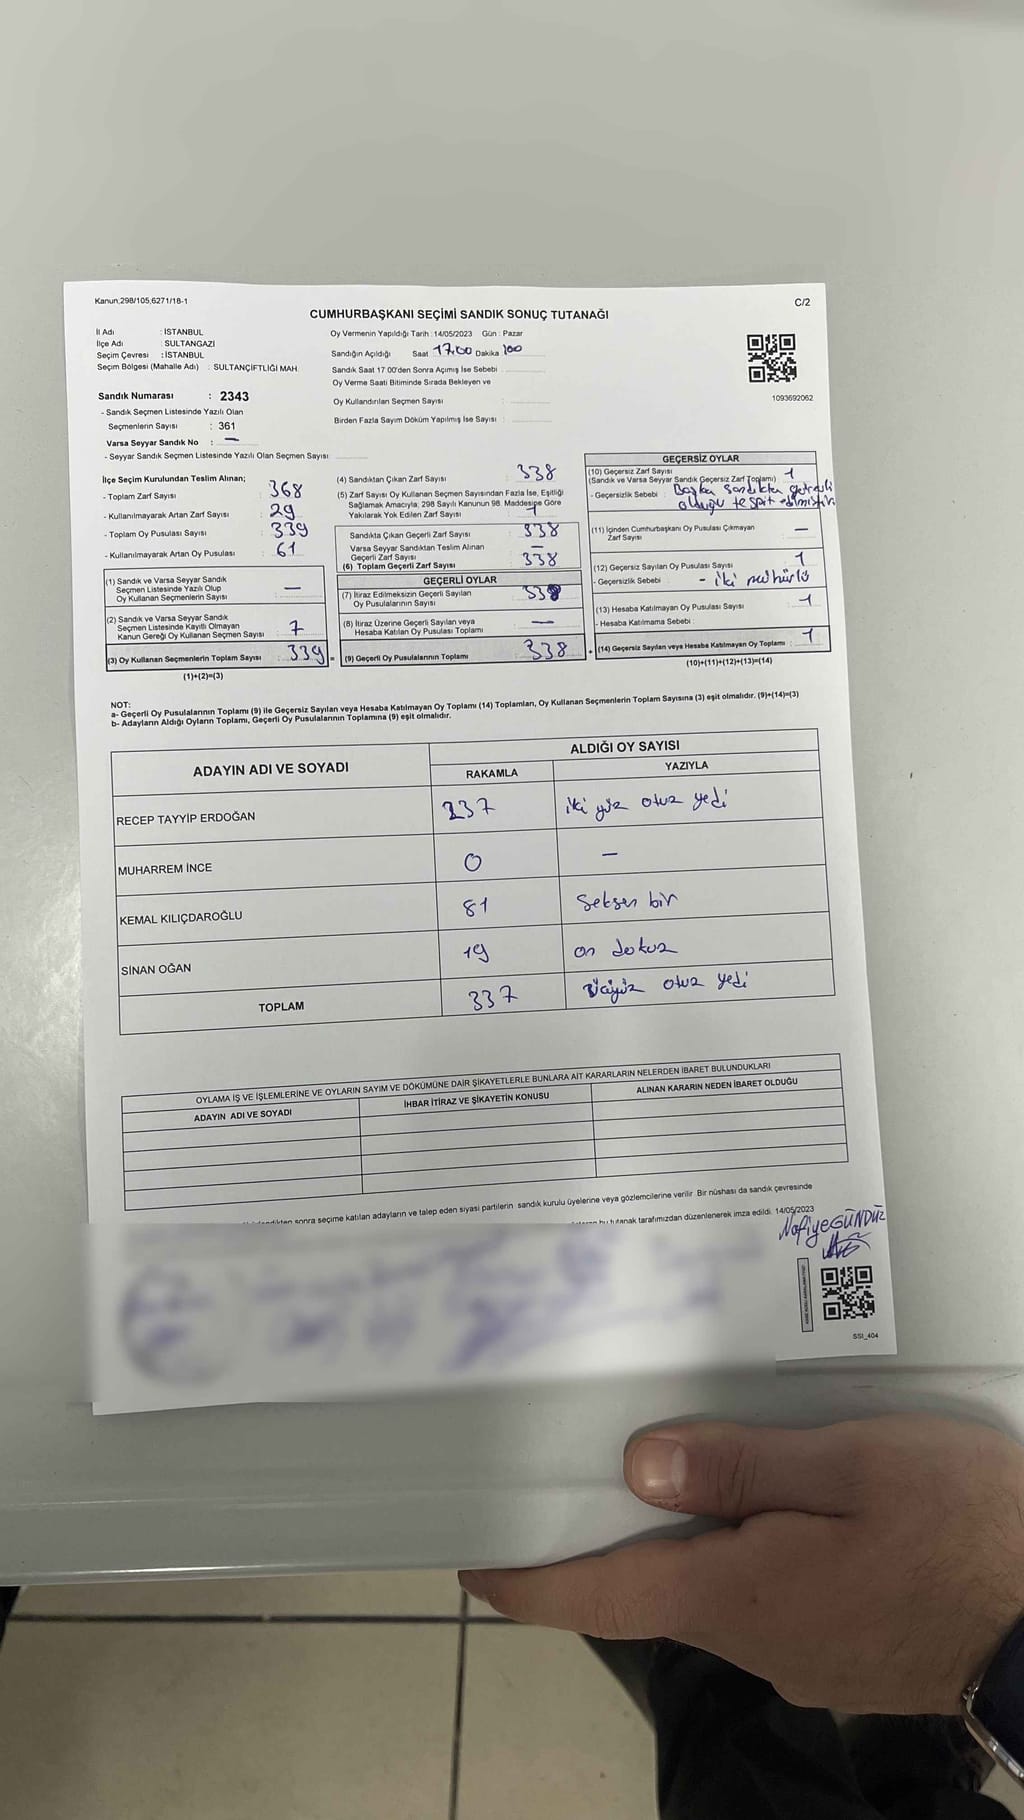 Kanun,298/105,6271/18-1
C/2
CUMHURBAŞKANI SEÇİMİ SANDIK SONUÇ TUTANAĞI
İl Adı : İSTANBUL
İlçe Adı : SULTANGAZİ
Seçim Çevresi : İSTANBUL
Seçim Bölgesi (Mahalle Adı) : SULTANÇİFTLİĞİ MAH.
Oy Vermenin Yapıldığı Tarih : 14/05/2023 Gün : Pazar
Sandığın Açıldığı Saat 17.00 Dakika 100
Sandık Saat 17:00'den Sonra Açımış İse Sebebi :
Oy Verme Saati Bitiminde Sırada Bekleyen ve
Oy Kullandırılan Seçmen Sayısı :
Birden Fazla Sayım Döküm Yapılmış İse Sayısı :
1093692062
Sandık Numarası : 2343
- Sandık Seçmen Listesinde Yazılı Olan
Seçmenlerin Sayısı : 361
Varsa Seyyar Sandık No : —
- Seyyar Sandık Seçmen Listesinde Yazılı Olan Seçmen Sayısı :
İlçe Seçim Kurulundan Teslim Alınan;
- Toplam Zarf Sayısı : 368
- Kullanılmayarak Artan Zarf Sayısı : 29
- Toplam Oy Pusulası Sayısı : 339
- Kullanılmayarak Artan Oy Pusulası : 61
(1) Sandık ve Varsa Seyyar Sandık
Seçmen Listesinde Yazılı Olup
Oy Kullanan Seçmenlerin Sayısı : —
(2) Sandık ve Varsa Seyyar Sandık
Seçmen Listesinde Kayıtlı Olmayan
Kanun Gereği Oy Kullanan Seçmen Sayısı : 7
(3) Oy Kullanan Seçmenlerin Toplam Sayısı : 339
(1)+(2)=(3)
(4) Sandıktan Çıkan Zarf Sayısı : 338
(5) Zarf Sayısı Oy Kullanan Seçmen Sayısından Fazla İse, Eşitliği
Sağlamak Amacıyla; 298 Sayılı Kanunun 98. Maddesine Göre
Yakılarak Yok Edilen Zarf Sayısı : 1
Sandıkta Çıkan Geçerli Zarf Sayısı : 338
Varsa Seyyar Sandıktan Teslim Alınan
Geçerli Zarf Sayısı : —
(6) Toplam Geçerli Zarf Sayısı : 338
GEÇERLİ OYLAR
(7) İtiraz Edilmeksizin Geçerli Sayılan
Oy Pusulalarının Sayısı : 338
(8) İtiraz Üzerine Geçerli Sayılan veya
Hesaba Katılan Oy Pusulası Toplamı : —
(9) Geçerli Oy Pusulalarının Toplamı : 338
GEÇERSİZ OYLAR
(10) Geçersiz Zarf Sayısı
(Sandık ve Varsa Seyyar Sandık Geçersiz Zarf Toplamı) : 1
- Geçersizlik Sebebi : Başka sandıkta
olduğu tespit edilmiştir
(11) İçinden Cumhurbaşkanı Oy Pusulası Çıkmayan
Zarf Sayısı : —
(12) Geçersiz Sayılan Oy Pusulası Sayısı : 1
- Geçersizlik Sebebi : - iki mühürlü
(13) Hesaba Katılmayan Oy Pusulası Sayısı : 1
- Hesaba Katılmama Sebebi :
(14) Geçersiz Sayılan veya Hesaba Katılmayan Oy Toplamı : 1
(10)+(11)+(12)+(13)=(14)
NOT:
a- Geçerli Oy Pusulalarının Toplamı (9) ile Geçersiz Sayılan veya Hesaba Katılmayan Oy Toplamı (14) Toplamları, Oy Kullanan Seçmenlerin Toplam Sayısına (3) eşit olmalıdır. (9)+(14)=(3)
b- Adayların Aldığı Oyların Toplamı, Geçerli Oy Pusulalarının Toplamına (9) eşit olmalıdır.
ADAYIN ADI VE SOYADI
ALDIĞI OY SAYISI
RAKAMLA YAZIYLA
RECEP TAYYİP ERDOĞAN 237 iki yüz otuz yedi
MUHARREM İNCE 0 —
KEMAL KILIÇDAROĞLU 81 Seksen bir
SİNAN OĞAN 19 on dokuz
TOPLAM 337 üçyüz otuz yedi
OYLAMA İŞ VE İŞLEMLERİNE VE OYLARIN SAYIM VE DÖKÜMÜNE DAİR ŞİKAYETLERLE BUNLARA AİT KARARLARIN NELERDEN İBARET BULUNDUKLARI
ADAYIN ADI VE SOYADI İHBAR İTİRAZ VE ŞİKAYETİN KONUSU ALINAN KARARIN NEDEN İBARET OLDUĞU
sonra seçime katılan adayların ve talep eden siyasi partilerin sandık kurulu üyelerine veya gözlemcilerine verilir. Bir nüshası da sandık çevresinde
bu tutanak tarafımızdan düzenlenerek imza edildi. 14/05/2023
Nafiye GÜNDÜZ
SSI_404